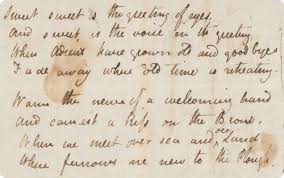 Sweet sweet is the greeting of eyes,
And sweet is the voice in its greeting
When Adieus have grown old and goodbyes
Fade away where old time is retreating—
Warm the nerve of a welcoming hand
And earnest a kiss on the Brow,
When we meet over sea and o'er Land
Where furrows are new to the Plough.